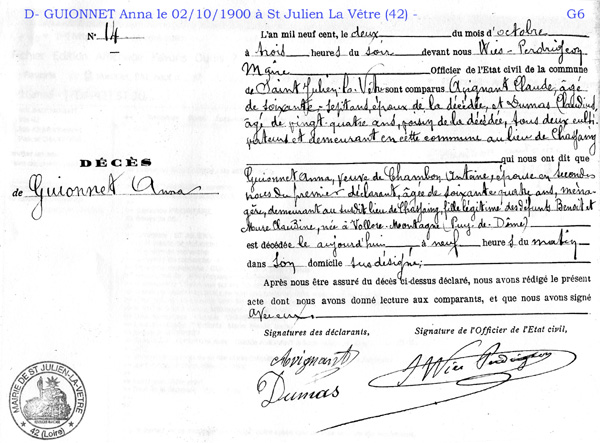 D- GUIONNET Anna le 02/10/1900 à St Julien La Vêtre (42) - G6
N° 14
L'an mil neuf cent, le deux du mois d'octobre
à trois heures du soir devant nous Wies-Perdrigeon
Maire Officier de l'Etat civil de la commune
de Saint Julien-la-Vêtre sont comparus Avignant Claude, âgé
de soixante-sept ans, époux de la décédée, et Dumas Claudius,
âgé de vingt-quatre ans, voisin de la décédée, tous deux culti
vateurs et demeurant en cette commune au lieu de
DÉCÈS
de Guionnet Anna
qui nous ont dit que
Guionnet Anna, veuve de Chambon Antoine, épouse en secondes
noces du premier déclarant, âgée de soixante quatre ans, ména
gère, demeurant au susdit lieu de fille légitime des défunts Benoit et
Claudine, née à Vollore-Montagne (Puy-de-Dôme)
est décédée le aujourd'hui, à neuf heures du matin
dans son domicile susdésigné;
Après nous être assuré du décès ci-dessus déclaré, nous avons rédigé le présent
acte dont nous avons donné lecture aux comparants, et que nous avons signé
avec eux.
Signatures des déclarants, Signature de l'Officier de l'Etat civil,
Avignant
Dumas
Wies Perdrigeon
MAIRIE DE ST JULIEN-LA-VETRE
42 (Loire)